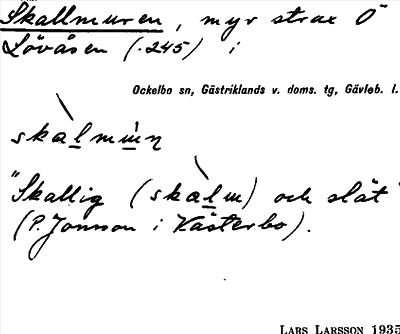 Skallmuren, myr strax Ö
Lövåsen (.245) i
Ockelbo sn, Gästriklands v. doms. tg, Gävleb. l.
skàlmùn
"Skallig (skàlm) och slät"
(P. Jonsson i Västerbo).
LARS LARSSON 1935